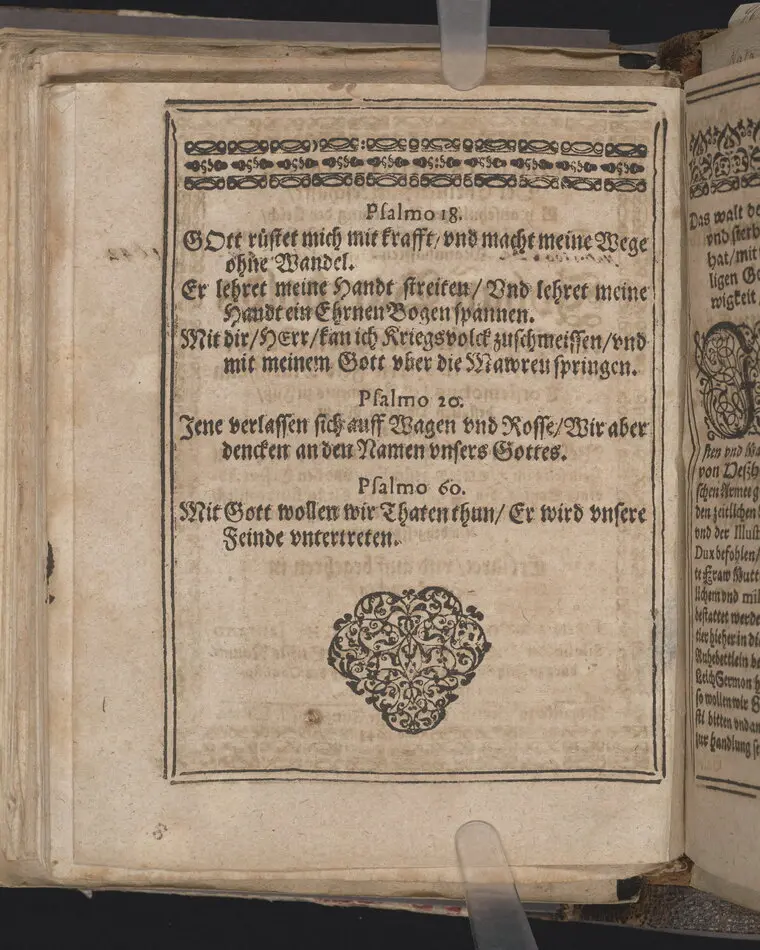 Psalmo 18.
GOtt rüstet mich mit krafft/ vnd macht meine Wege
ohne Wandel.
Er lehret meine Handt streiten/ Vnd lehret meine
Handt ein Ehrnen Bogen spannen.
Mit dir/ HErr/ kan ich Kriegsvolck zuschmeissen/ vnd
mit meinem Gott vber die Mawren springen.
Psalmo 20.
Jene verlassen sich auff Wagen vnd Rosse/ Wir aber
dencken an den Namen vnsers Gottes.
Psalmo 60.
Mit Gott wollen wir Thaten thun/ Er wird vnsere
Feinde vntertreten.
Das walt
vnd
hat/ mit
ligen
wigkeit
von
den zeitlichen
vnd der
Dux befohlen/
lichem vnd
bestattet
so wollen wir
bitten
zur Handlung